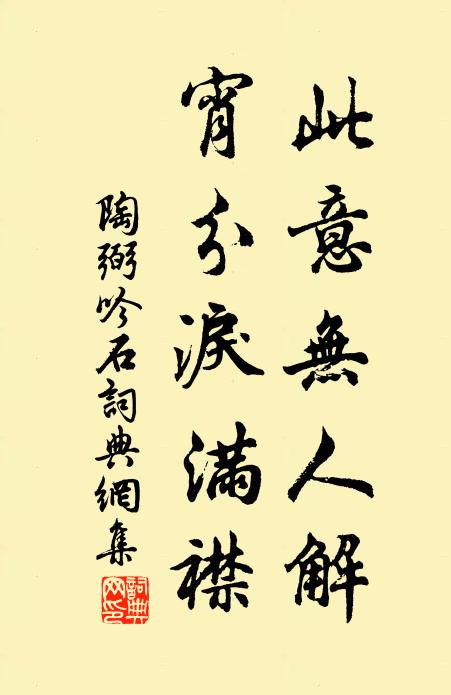 此意無人解
宵分淚滿襟
陶弼吟石詞典網集
詞典网印